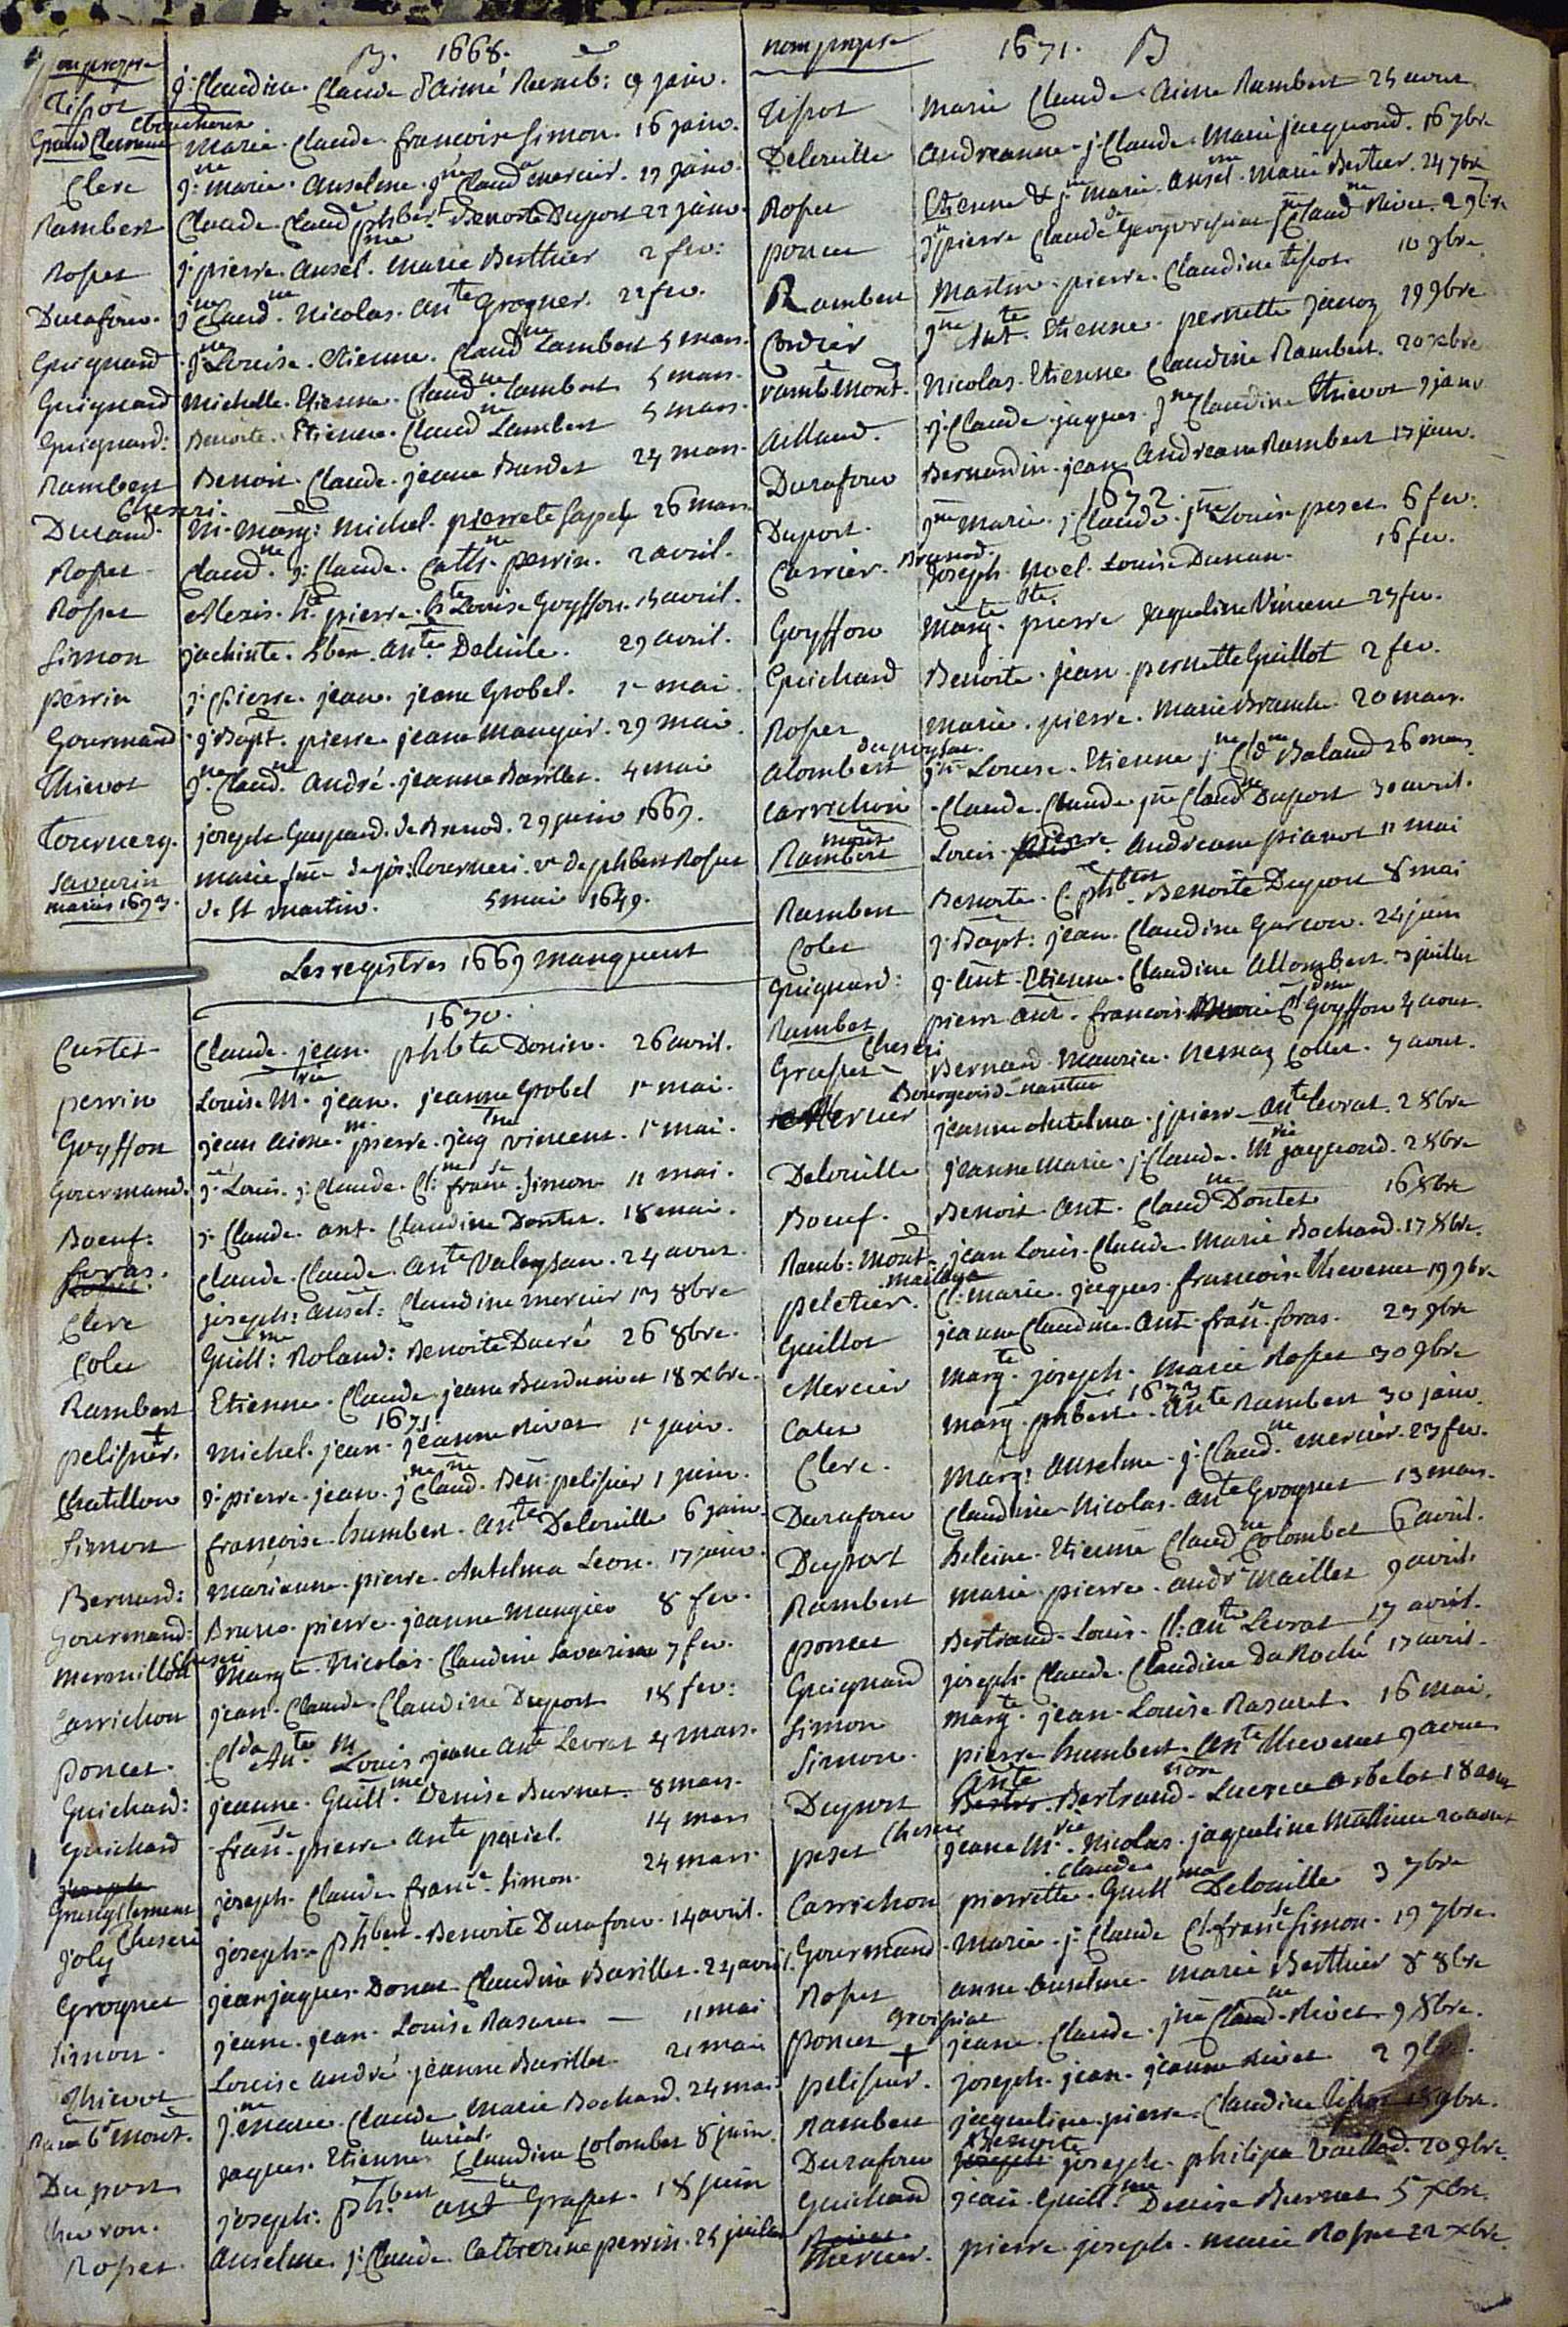 B. 1668.
Tissot j. Claudine. Claude d'aimé Ramb: 9 janv.
Grand Clement Chouchoux Marie. Claude. francoise Simon. 16 janv.
Clerc j.ne marie. anselme. j.ne Claud.ne mercier. 19 janv.
Rambert Claude. Claude phbert. Benoite Duport 22 janv.
Rosset j. pierre. ansel.me Marie Berthier 2 fev:
Durafour. j.ne Claud.ne Nicolas. ante Grognet. 22 fev.
Guignard j.ne Louise. Etienne. Claud.ne Lambert 5 mars.
Guignard Michelle. Etienne. Claud.ne Lambert 5 mars.
Guignard: Benoite. Etienne. Claud.ne Lambert 5 mars.
Rambert Benoit. Claude. jeane Burdet 24 mars.
Durand. Cheseri. M. Marg: Michel. pierrete Sappey 26 mars
Rosset Claud.ne j: Claude. Cath.ne perrin. 2 avril.
Rosset Alexis. pierre. Louise Goyffon. 15 avril.
Simon jachinte. hber. ante. Deluile. 29 avril.
perrin j. pierre. jean. jeane Grobel. 1r mai.
Gourmand j. Bapt. pierre. jeane Maugier. 29 mai.
Thievot j.ne Claud.ne André. jeanne Barillet. 4 mai
Tournery. joseph Gaspard. de Brenod. 29 juin 1669.
Savarin mariés 1693. marie de joi: Tourneri. ve de phbert Rosset
de St martin. 5 mai 1649.
Les registres 1669 manquent
1670.
Curtet Claude. jean. phbte Donin. 26 avril.
perrin Louise M.rie jean. jeanne Grobel 1r mai.
Goyffon jean aimé. pierre. jaq.ne vincent. 1r mai.
Gourmand. j. Louis. j: Claude. Cl:ne franse. Simon 11 mai.
Boeuf: j. Claude. ant. Claudine Dontet. 18 mai.
foras. Claude. Claude. ante Valeysan. 24 aout.
Clerc joseph: ansel: Claudine mercier 13 8bre
Colet Guill:me Roland: Benoite Ducré 26 8bre.
Rambert Etienne. Claude. jeane Burdet 18 xbre.
1671.
pelissier. + Michel. jean. jeanne Rivat 1r janv.
Chatillon j. pierre. jean. j.ne Claud.ne Ben: pelissier 1 janv.
Simon francoise. humbert. ante Delouille 6 janv.
Bernard: Marianne. pierre. Antelma Leon. 17 janv.
Gourmand: Bruno. pierre. jeanne Maugier 8 fev.
Mermillon Cheseri Margte. Nicolas. Claudine Savarine 7 fev.
Carrichon jean. Claude. Claudine Duport 18 fev:
poncet. Clda Ante. M Louis. jeane ante Levrat 4 mars.
Guichard: jeanne. Guill.me Denise Burnet. 8 mars.
Guichard franse. pierre. ante periel. 14 mars
joseph. Claude. franse. Simon. 24 mars.
joly Cheseri joseph. phbert. Benoite Durafour. 14 avril.
Grognet jean jaques. Donat. Claudine Barillet. 24 avril.
Simon. jeane. jean. Louise Rasurel — 11 mai
Thievot Louise André. jeanne Barillet. 21 mai
Ramb.t mont. j.ne marie. Claude. Marie Bochard. 24 mai.
Duport jaques. Etienne. Claudine Colombet 8 juin.
Chevron. joseph: phbert ante Grasset. 18 juin
Rosset. Anselme. j: Claude. Catherine perrin. 25 juillet
nom propre 1671. B
Tissot Marie Claude. Aimé Rambert 25 aout
Delouille Andreanne. j. Claude. Marie jacquond. 16 7bre
Rosset Etienne & j.ne Marie. Ansel.me Marie Bertier. 24 7bre
poncet j. pierre Claude j.ne Claud.ne Rivet. 2 9bre
Rambert Martin. pierre. Claudine tissot. 10 9bre
Cordier j.ne Ant.te Etienne. pernette janoz 19 9bre
ramb. mont. Nicolas. Etienne Claudine Rambert. 20 xbre
Aillaud. j. Claude. jaques. j.ne Claudine Thievot 9 janv
Durafour Bernardin. jean Andreane Rambert 17 janv.
1672.
Duport. j.ne Marie. j: Claude. j.ne Louise peset. 6 fev.
Carrier. Brenod. joseph. Noel. Louise Dunan. 16 fev.
Goyffon Margte. pierre jaqueline Vincent 27 fev.
Guichard Benoite. jean. pernette Guillot 2 fev.
Rosset Marie. pierre. Marie Brambe 20 mars.
Alombert j.ne Louise. Etienne j.ne Cld.ne Baland 26 mars
Carrichon Claude. Claude. j.ne Claud.ne Duport 30 avril.
Rambert mont Louis. pierre. Andreane pianet 11 mai
Rambert Benoite. C. phbert. Benoite Duport 8 mai
Colet j. Bapt: jean. Claudine Garcon. 24 juin
Guignard: j. Ant. Etienne. Claudine Allombert. 3 juillet
Rambet pierre ant. francois. Cldme Goyffon 4 aout.
Grasset Cheseri Bernard. Maurice. Nemoz Collet. 7 aout.
Mercier Bourgeois de nantua jeanne Antelma. j pierre ante Levrat. 2 8bre
Delouille jeanne Marie. j. Claude. M.rie jaquond. 2 8bre
Boeuf. Benoit. Ant. Claud.ne Dontet 16 8bre
Ramb: Mont. jean Louis. Claude. Marie Bochard. 17 8bre.
peletier. Cl: marie. jaques. francoise Thevenet 19 9bre
Guillot jeanne Claudine. Ant. franse. foras. 23 9bre
Mercier Margte. joseph. Marie Rosset 30 9bre
1673
Catet Marg. phbert. ante Rambert 30 janv.
Clerc. Marg: Anselme. j. Claud.ne mercier. 23 fev.
Durafour Claudine. Nicolas. ante Grognet 13 mars.
Duport heleine. Etienne Claud.ne Colombet 6 avril.
Rambert Marie pierre. andr.e Maillet 9 avril.
poncet Bertrand. Louis. Cl: ante Levrat 17 avril.
Guignard joseph. Claude. Claudine Du Roché 17 avril.
Simon Margte. jean. Louise Rasurel. 16 mai.
Simon. pierre. humbert. ante Thevenet 9 aout
Duport ante Bertrand. Lucrece Arbelot 18 aout
peset Cheseri jeane M.rie Nicolas. jaqueline Mathieu 20 aout
Carrichon pierrette. Claude Guill.ma Delouille 3 7bre
Gourmand. Marie. j. Claude Cl. franse Simon. 19 7bre.
Rosset anne. Anselme. Marie Berthier 8 8bre
poncet Groissiat jeane. Claude. j.ne Claud.ne Rivet. 9 8bre.
pelissier. + joseph. jean. jeanne Rivet. 2 9bre.
Rambert jaqueline. pierre. Claudine Tissot 18 9bre.
Durafour Benoite joseph. philipa Vaillod. 20 9bre.
Guichard jean. Guill.me Denise Burnet 5 xbre.
Mercier. pierre. joseph. marie Rosset 22 xbre.